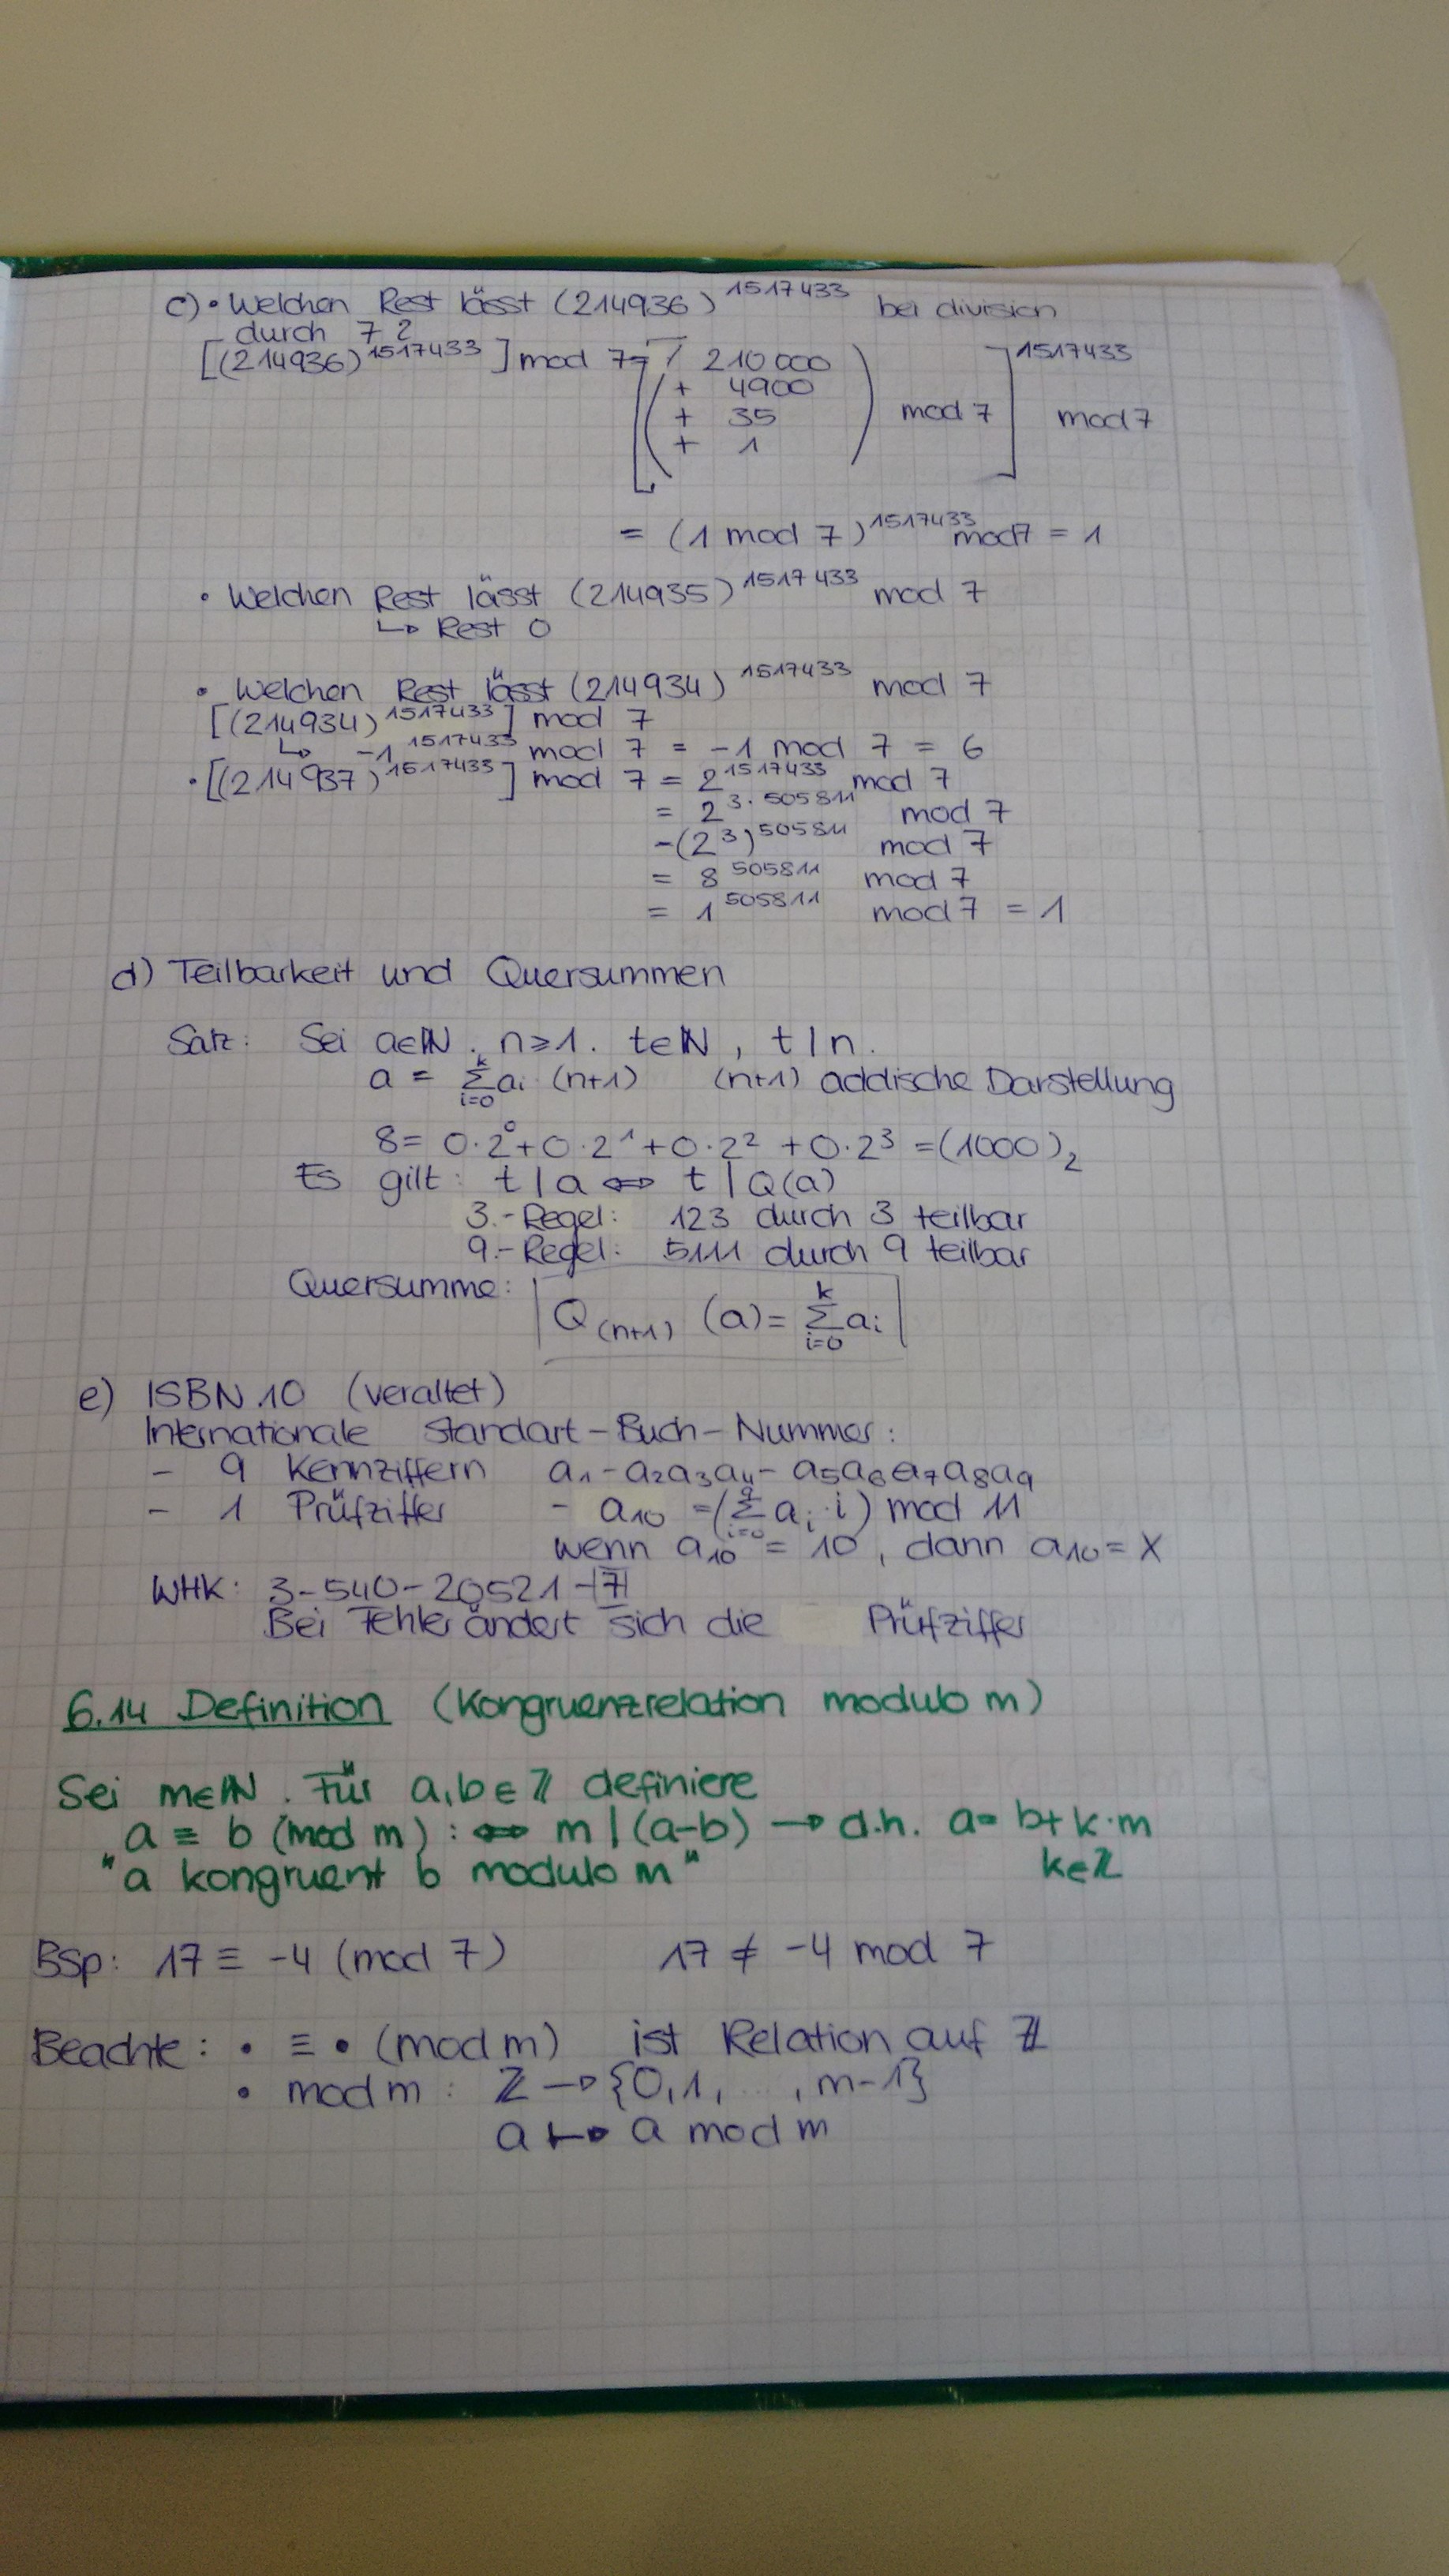 c) • Welchen Rest lässt (214936)^1517433 bei division
durch 7?
[(214936)^1517433] mod 7 = [(210000
+ 4900
+ 35
+ 1) mod 7]^1517433 mod 7
= (1 mod 7)^1517433 mod 7 = 1
• Welchen Rest lässt (214935)^1517433 mod 7
↳ Rest 0
• Welchen Rest lässt (214934)^1517433 mod 7
[(214934)^1517433] mod 7
↳ -1^1517433 mod 7 = -1 mod 7 = 6
• [(214937)^1517433] mod 7 = 2^1517433 mod 7
= 2^3·505811 mod 7
-(2^3)^505811 mod 7
= 8^505811 mod 7
= 1^505811 mod 7 = 1
d) Teilbarkeit und Quersummen
Satz: Sei a∈ℕ, n≥1. t∈ℕ, t|n.
a = Σ_{i=0}^{k} a_i (n+1) (n+1) addische Darstellung
8= 0·2^0+0·2^1+0·2^2+0·2^3 =(1000)_2
Es gilt: t|a ⇔ t|Q(a)
3.-Regel: 123 durch 3 teilbar
9.-Regel: 5111 durch 9 teilbar
Quersumme: Q_(n+1) (a)= Σ_{i=0}^{k} a_i
e) ISBN 10 (veraltet)
Internationale Standart-Buch-Nummer:
- 9 Kennziffern a_1-a_2a_3a_4-a_5a_6a_7a_8a_9
- 1 Prüfziffer - a_10 =(Σ_{i=0}^{9} a_i·i) mod 11
wenn a_10 = 10, dann a_10 = X
WHK: 3-540-20521-|7|
Bei Fehler ändert sich die Prüfziffer
6.14 Definition (Kongruenzrelation modulo m)
Sei m∈ℕ. Für a,b∈ℤ definiere
a ≡ b (mod m) :⇔ m|(a-b) → d.h. a= b+k·m
"a kongruent b modulo m" k∈ℤ
BSp: 17 ≡ -4 (mod 7) 17 ≠ -4 mod 7
Beachte: • ≡ • (mod m) ist Relation auf ℤ
• mod m: ℤ → {0,1,...,m-1}
a ↦ a mod m